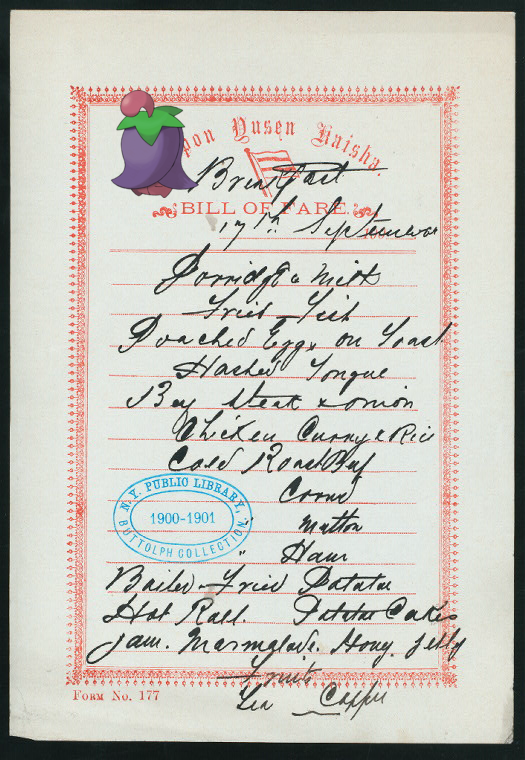 pon Yusen Kaisha.
Breakfast
BILL OF FARE.
17th September
Porridge & Milk
Fried Fish
Poached Eggs on Toast
Hashed Tongue
Beef Steak & onion
Chicken Curry & Rice
Cold Roast Beef
Corned
" Mutton
" Ham
Boiled Fried Potatoe
Hot Roll. Potatoe Cakes
Jam. Marmglade. Hony. Jelly
Fruits
Tea Coffee
N. Y. PUBLIC LIBRARY,
1900-1901
BUTTOLPH COLLECTION
FORM NO. 177